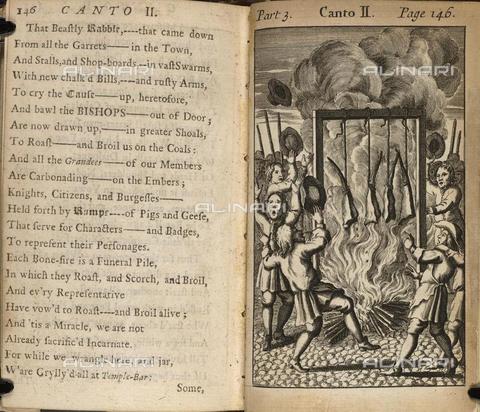 146 CANTO II.
That Beastly Rabble,----that came down
From all the Garrets——in the Town,
And Stalls, and Shop-boards—in vast Swarms,
With new chalk'd Bills,——and rusty Arms,
To cry the Cause——up, heretofore,
And bawl the BISHOPS——out of Door;
Are now drawn up,——in greater Shoals,
To Roast——and Broil us on the Coals;
And all the Grandees——of our Members
Are Carbonading——on the Embers;
Knights, Citizens, and Burgesses——
Held forth by Rumps----of Pigs and Geese,
That serve for Characters——and Badges,
To represent their Personages.
Each Bone-fire is a Funeral Pile,
In which they Roast, and Scorch, and Broil,
And ev'ry Representative
Have vow'd to Roast----and Broil alive;
And 'tis a Miracle, we are not
Already sacrific'd Incarnate.
For while we wrangle here, and jar,
W'are Grylly'd all at Temple-Bar:
Some,
Part 3. Canto II. Page 146.
ALINARI
ALINARI
ALINARI
ALINARI
ALINARI
ALINARI